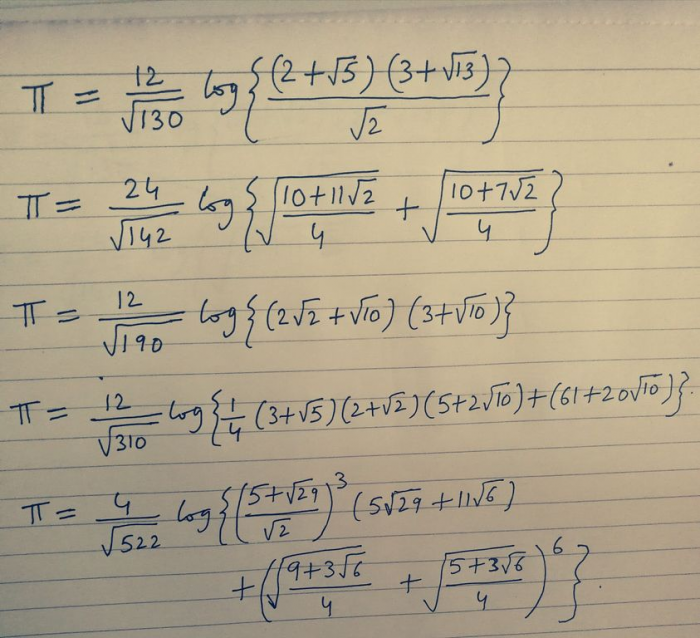 π = 12/√130 log{(2+√5)(3+√13)/√2}
π = 24/√142 log{√((10+11√2)/4) + √((10+7√2)/4)}
π = 12/√190 log{(2√2+√10)(3+√10)}
π = 12/√310 log{1/4 (3+√5)(2+√2)(5+2√10)+(61+20√10)}.
π = 4/√522 log{((5+√29)/√2)³ (5√29+11√6)
+(√((9+3√6)/4) + √((5+3√6)/4))⁶}.